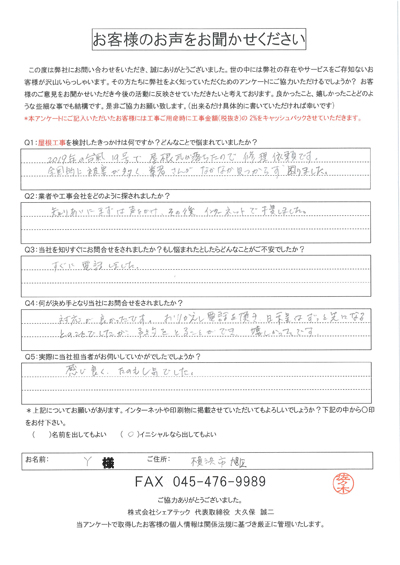 お客様のお声をお聞かせください
この度は弊社にお問い合わせをいただき、誠にありがとうございました。世の中には弊社の存在やサービスをご存知ないお
客様が沢山いらっしゃいます。その方たちに弊社をよく知っていただくためのアンケートにご協力いただけるでしょうか? お客
様のご意見をお聞かせいただき今後の活動に反映させていただきたいと考えております。良かったこと、嬉しかったことどのよ
うな些細な事でも結構です。是非ご協力お願い致します。(出来るだけ具体的に書いていただければ幸いです)
*本アンケートにご記入いただいたお客様には工事ご用命時に工事金額(税抜き)の 2%をキャッシュバックさせていただきます。
Q1:屋根工事を検討したきっかけは何ですか?どんなことで悩まれていましたか?
2019年の台風 19号で 屋根瓦が落ちたので 修理依頼です。
全国的に被害が多く 業者さんが なかなか見つからず 困りました。
Q2:業者や工事会社をどのように探されましたか?
知りあいにまずは声をかけ、その後 インターネットで探しました。
Q3:当社を知りすぐにお問合せをされましたか?もし悩まれたとしたらどんなことがご不安でしたか?
すぐに 電話しました。
Q4:何が決め手となり当社にお問合せをされましたか?
対応が良かったです。おりかえし電話を頂き
嬉しかったです
Q5:実際に当社担当者がお伺いしていかがでしたでしょうか?
感じ良く、たのもしかったでした。
*上記についてお願いがあります。インターネットや印刷物に掲載させていただいてもよろしいでしょうか?下記の中から〇印
をお付下さい。
( )名前を出してもよい ( ○ )イニシャルなら出してもよい
お名前: Y 様 ご住所: 横浜市
佐々木
FAX 045-476-9989
ご協力ありがとうございました。
株式会社シェアテック 代表取締役 大久保 誠二
当アンケートで取得したお客様の個人情報は関係法規に基づき厳正に管理いたします。